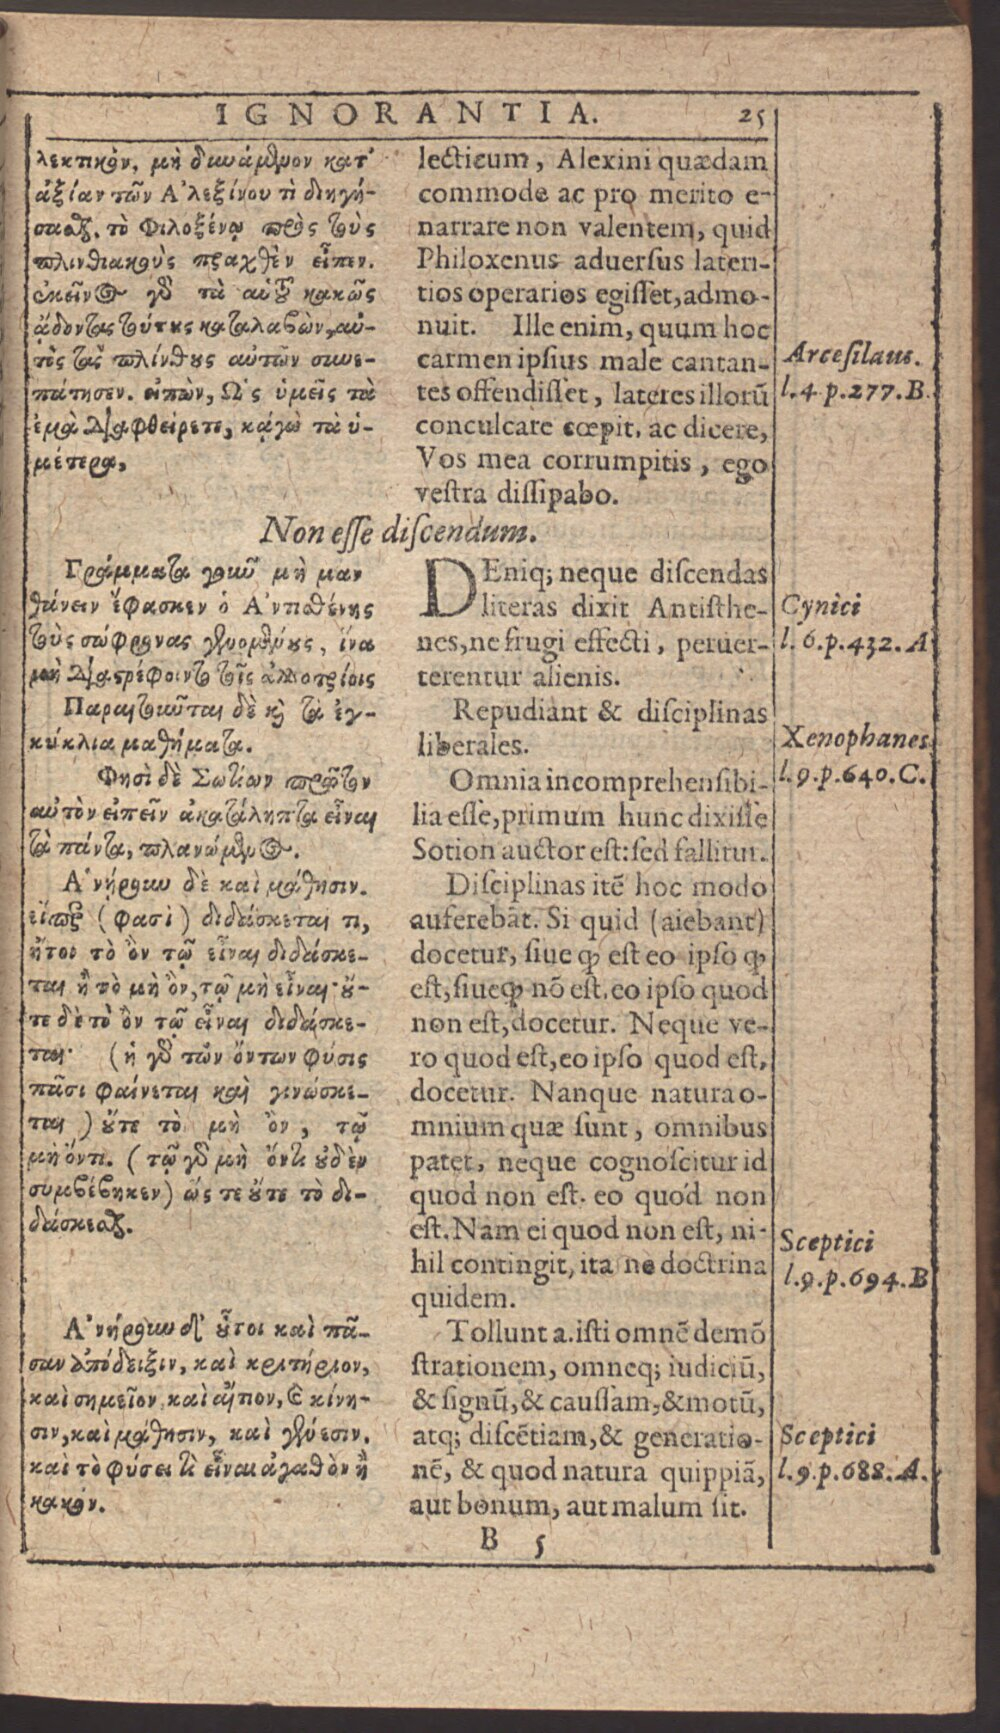 IGNORANTIA. 25
λεκτικὸν, μὴ δυνάμενον κατ'
ἀξίαν τῶν Ἀλεξίνου τὶ διηγή-
σασθ. τὸ Φιλοξένῳ πρὸς τοὺς
πλινθιακοὺς πραχθὲν εἶπεν.
ἐκεῖνος γδ τὰ αὐτοῦ κακῶς
ᾄδοντας τούτους καταλαβὼν, αὐ-
τὸς τὰς πλίνθους αὐτῶν συνε-
πάτησεν. εἰπὼν, Ὡς ὑμεῖς τὰ
ἐμὰ διαφθείρετε, κᾀγὼ τὰ ὑ-
μέτερα,
lecticum, Alexini quædam
commode ac pro merito e-
narrare non valentem, quid
Philoxenus aduersus lateri-
tios operarios egisset, admo-
nuit. Ille enim, quum hoc
carmen ipsius male cantan-
tes offendisset, lateres illorū
conculcare cœpit, ac dicere,
Vos mea corrumpitis, ego
vestra dissipabo.
Arcesilaus.
l. 4 p. 277. B.
Non esse discendum.
Γράμματα γοῦν μὴ μαν
θάνειν ἔφασκεν ὁ Ἀντισθένης
τοὺς σώφρονας γενομένους, ἵνα
μὴ διαστρέφοιντο τοῖς ἀλλοτρίοις
Παραιτοῦνται δὲ κὶ τὰ ἐγ-
κύκλια μαθήματα.
Φησὶ δὲ Σωτίων πρῶτον
αὐτὸν εἰπεῖν ἀκατάληπτα εἶναι
τὰ πάντα, πλανώμενος.
Ἀνῄρουν δὲ καὶ μάθησιν.
εἴπερ (φασὶ) διδάσκεται τι,
ἤτοι τὸ ὂν τῷ εἶναι διδάσκε-
ται ἢ τὸ μὴ ὂν, τῷ μὴ εἶναι· οὔ-
τε δὲ τὸ ὂν τῷ εἶναι διδάσκε-
ται· (ἡ γδ τῶν ὄντων φύσις
πᾶσι φαίνεται καὶ γινώσκε-
ται) οὔτε τὸ μὴ ὂν, τῷ
μὴ ὄντι. (τῷ γδ μὴ ὄντι οὐδὲν
συμβέβηκεν) ὥς τε οὔτε τὸ δι-
δάσκεσθ.
Ἀνῄρουν δ' οὗτοι καὶ πᾶ-
σαν ἀπόδειξιν, καὶ κριτήριον,
καὶ σημεῖον καὶ αἴτιον, & κίνη-
σιν, καὶ μάθησιν, καὶ γένεσιν.
καὶ τὸ φύσει τὶ εἶναι ἀγαθὸν ἢ
κακόν.
DEniq; neque discendas
literas dixit Antisthe-
nes, ne frugi effecti, peruer-
terentur alienis.
Repudiant & disciplinas
liberales.
Omnia incomprehensibi-
lia esse, primum hunc dixisse
Sotion auctor est: sed fallitur.
Disciplinas itē hoc modo
auferebāt. Si quid (aiebant)
docetur, siue ꝙ est eo ipso ꝙ
est, siue ꝙ nō est. eo ipso quod
non est, docetur. Neque ve-
ro quod est, eo ipso quod est,
docetur. Nanque natura o-
mnium quæ sunt, omnibus
patet, neque cognoscitur id
quod non est. eo quod non
est. Nam ei quod non est, ni-
hil contingit, ita ne doctrina
quidem.
Tollunt a. isti omnē demō
strationem, omneq; iudiciū,
& signū, & caussam, & motū,
atq; discētiam, & generatio-
nē, & quod natura quippiā,
aut bonum, aut malum sit.
Cynici
l. 6. p. 432. A
Xenophanes
l. 9. p. 640. C.
Sceptici
l. 9. p. 694. B
Sceptici
l. 9. p. 688. A.
B 5